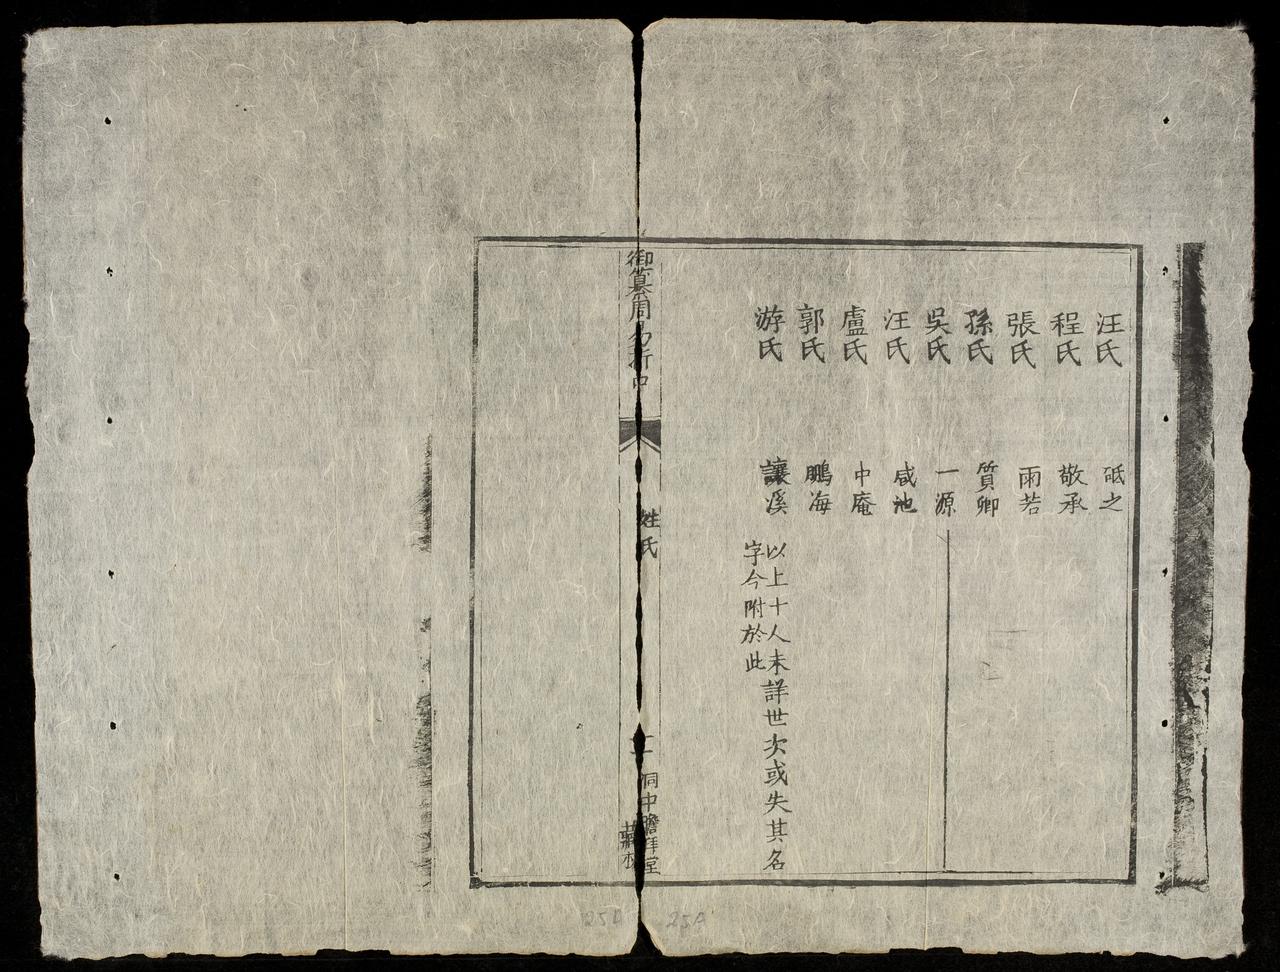 汪氏 砥之
程氏 敬承
張氏 雨若
孫氏 質卿
吳氏 一源
汪氏 咸池
盧氏 中庵
郭氏 鵬海
游氏 讓溪 以上十人未詳世次或失其名
字今附於此
御纂周易折中 姓氏
洞中瞻拜堂
25A